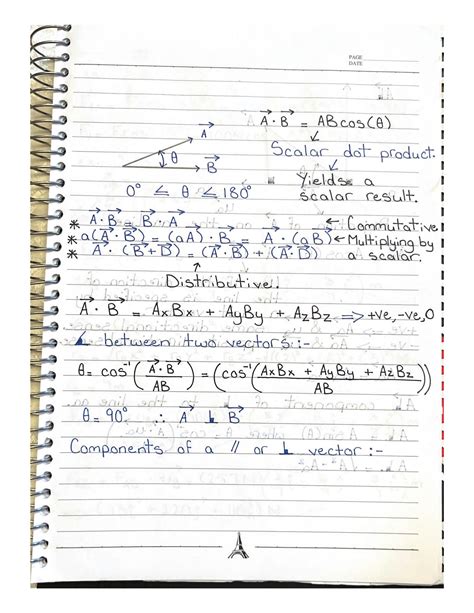 PAGE
DATE
A⃗ · B⃗ = ABcos(θ)
A⃗
Scalar dot product.
θ
B⃗
Yields a
scalar result.
0° ≤ θ ≤ 180°
* A⃗ · B⃗ = B⃗ · A⃗ ← Commutative
* a(A⃗ · B⃗) = (aA⃗) · B⃗ = A⃗ · (aB⃗) ← Multiplying by
* A⃗ · (B⃗ + D⃗) = (A⃗ · B⃗) + (A⃗ · D⃗) a scalar.
Distributive.
A⃗ · B⃗ = AxBx + AyBy + AzBz ⟹ +ve, -ve, 0
∠ between two vectors :-
θ = cos⁻¹(A⃗ · B⃗ / AB) = (cos⁻¹(AxBx + AyBy + AzBz / AB))
θ = 90° ∴ A⃗ ⊥ B⃗
Components of a // or ⊥ vector :-